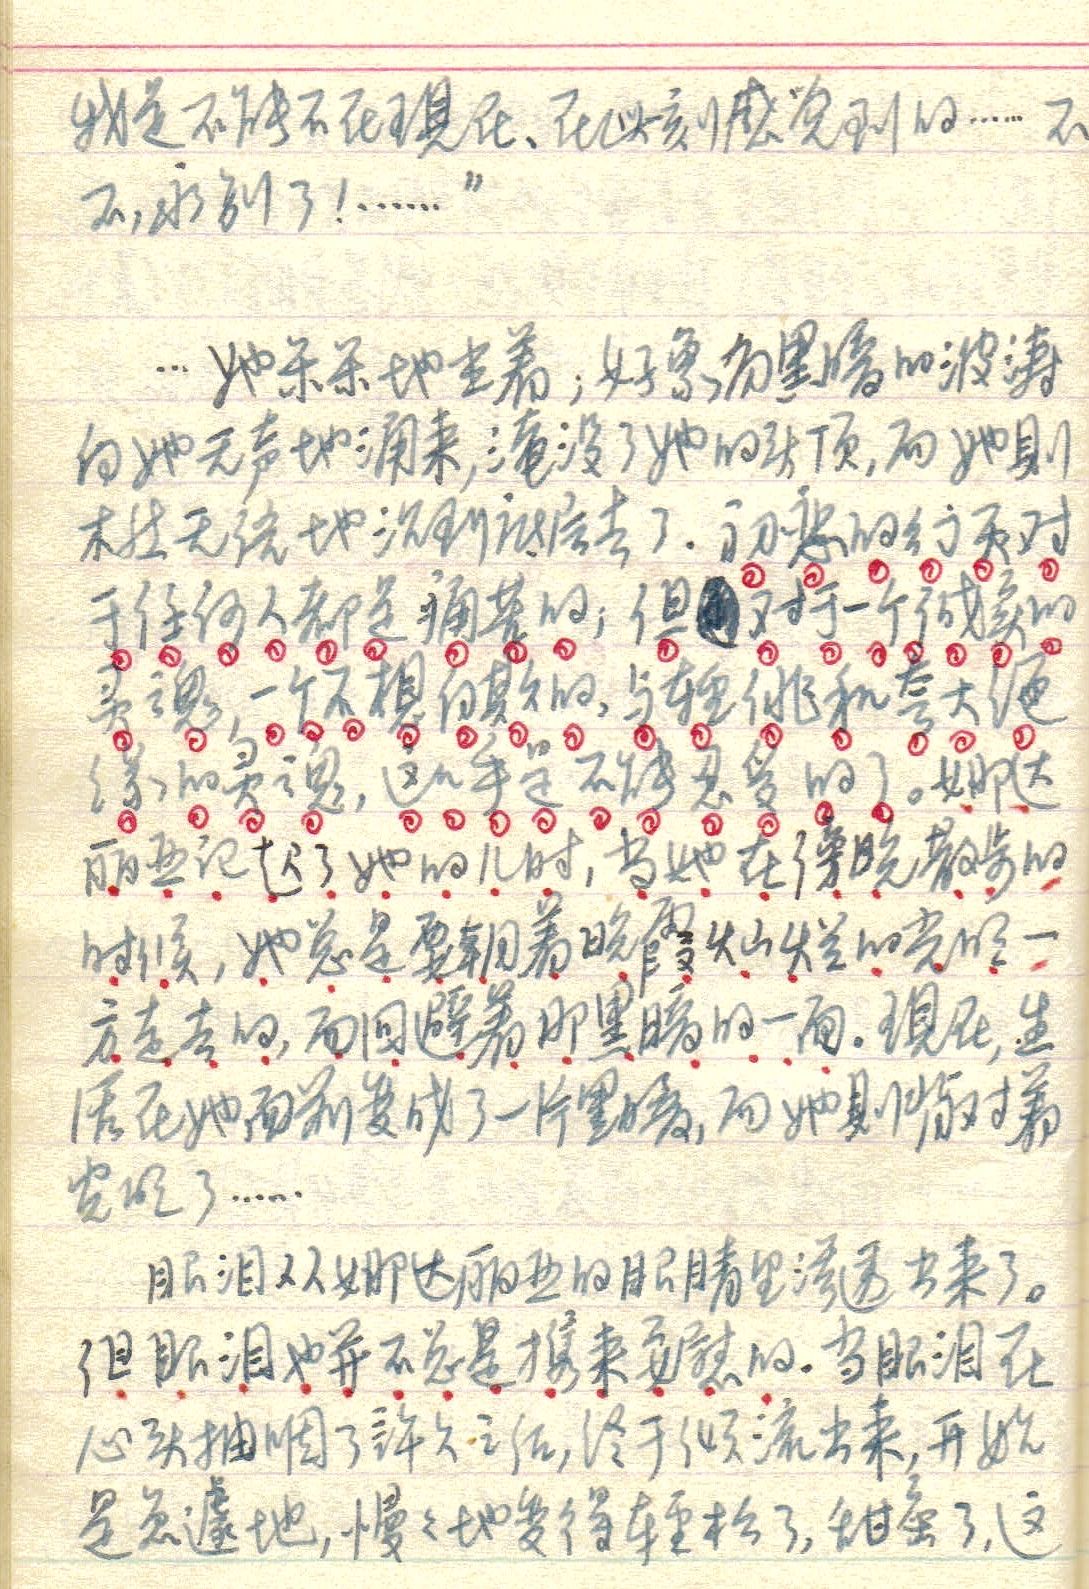 我是不能不在现在、在此刻感觉到的……不
不，永别了！……”
…她呆呆地坐着；好象有黑暗的波涛
向她无声地涌来，淹没了她的头顶，而她则
木然无统地沉到底层去了．初恋的结束对
于任何人都是痛苦的；但对于一个诚实的
灵魂，一个不想自欺的，与轻佻和夸大绝
缘的灵魂，这几乎是不能忍受的了。娜达
丽亚记起了她的儿时，当她在傍晚散步的
时候，她总是要朝着晚霞灿烂的光明一
方走去的，而回避着那黑暗的一面。现在，生
活在她面前变成了一片黑暗，而她则背对着
光明了……
眼泪从娜达丽亚的眼睛里渗透出来了。
但眼泪也并不总是携来安慰的．当眼泪在
心头抽咽了許久之后，终于倾流出来，开始
是急遽地，慢々地变得轻松了，甜蜜了，这